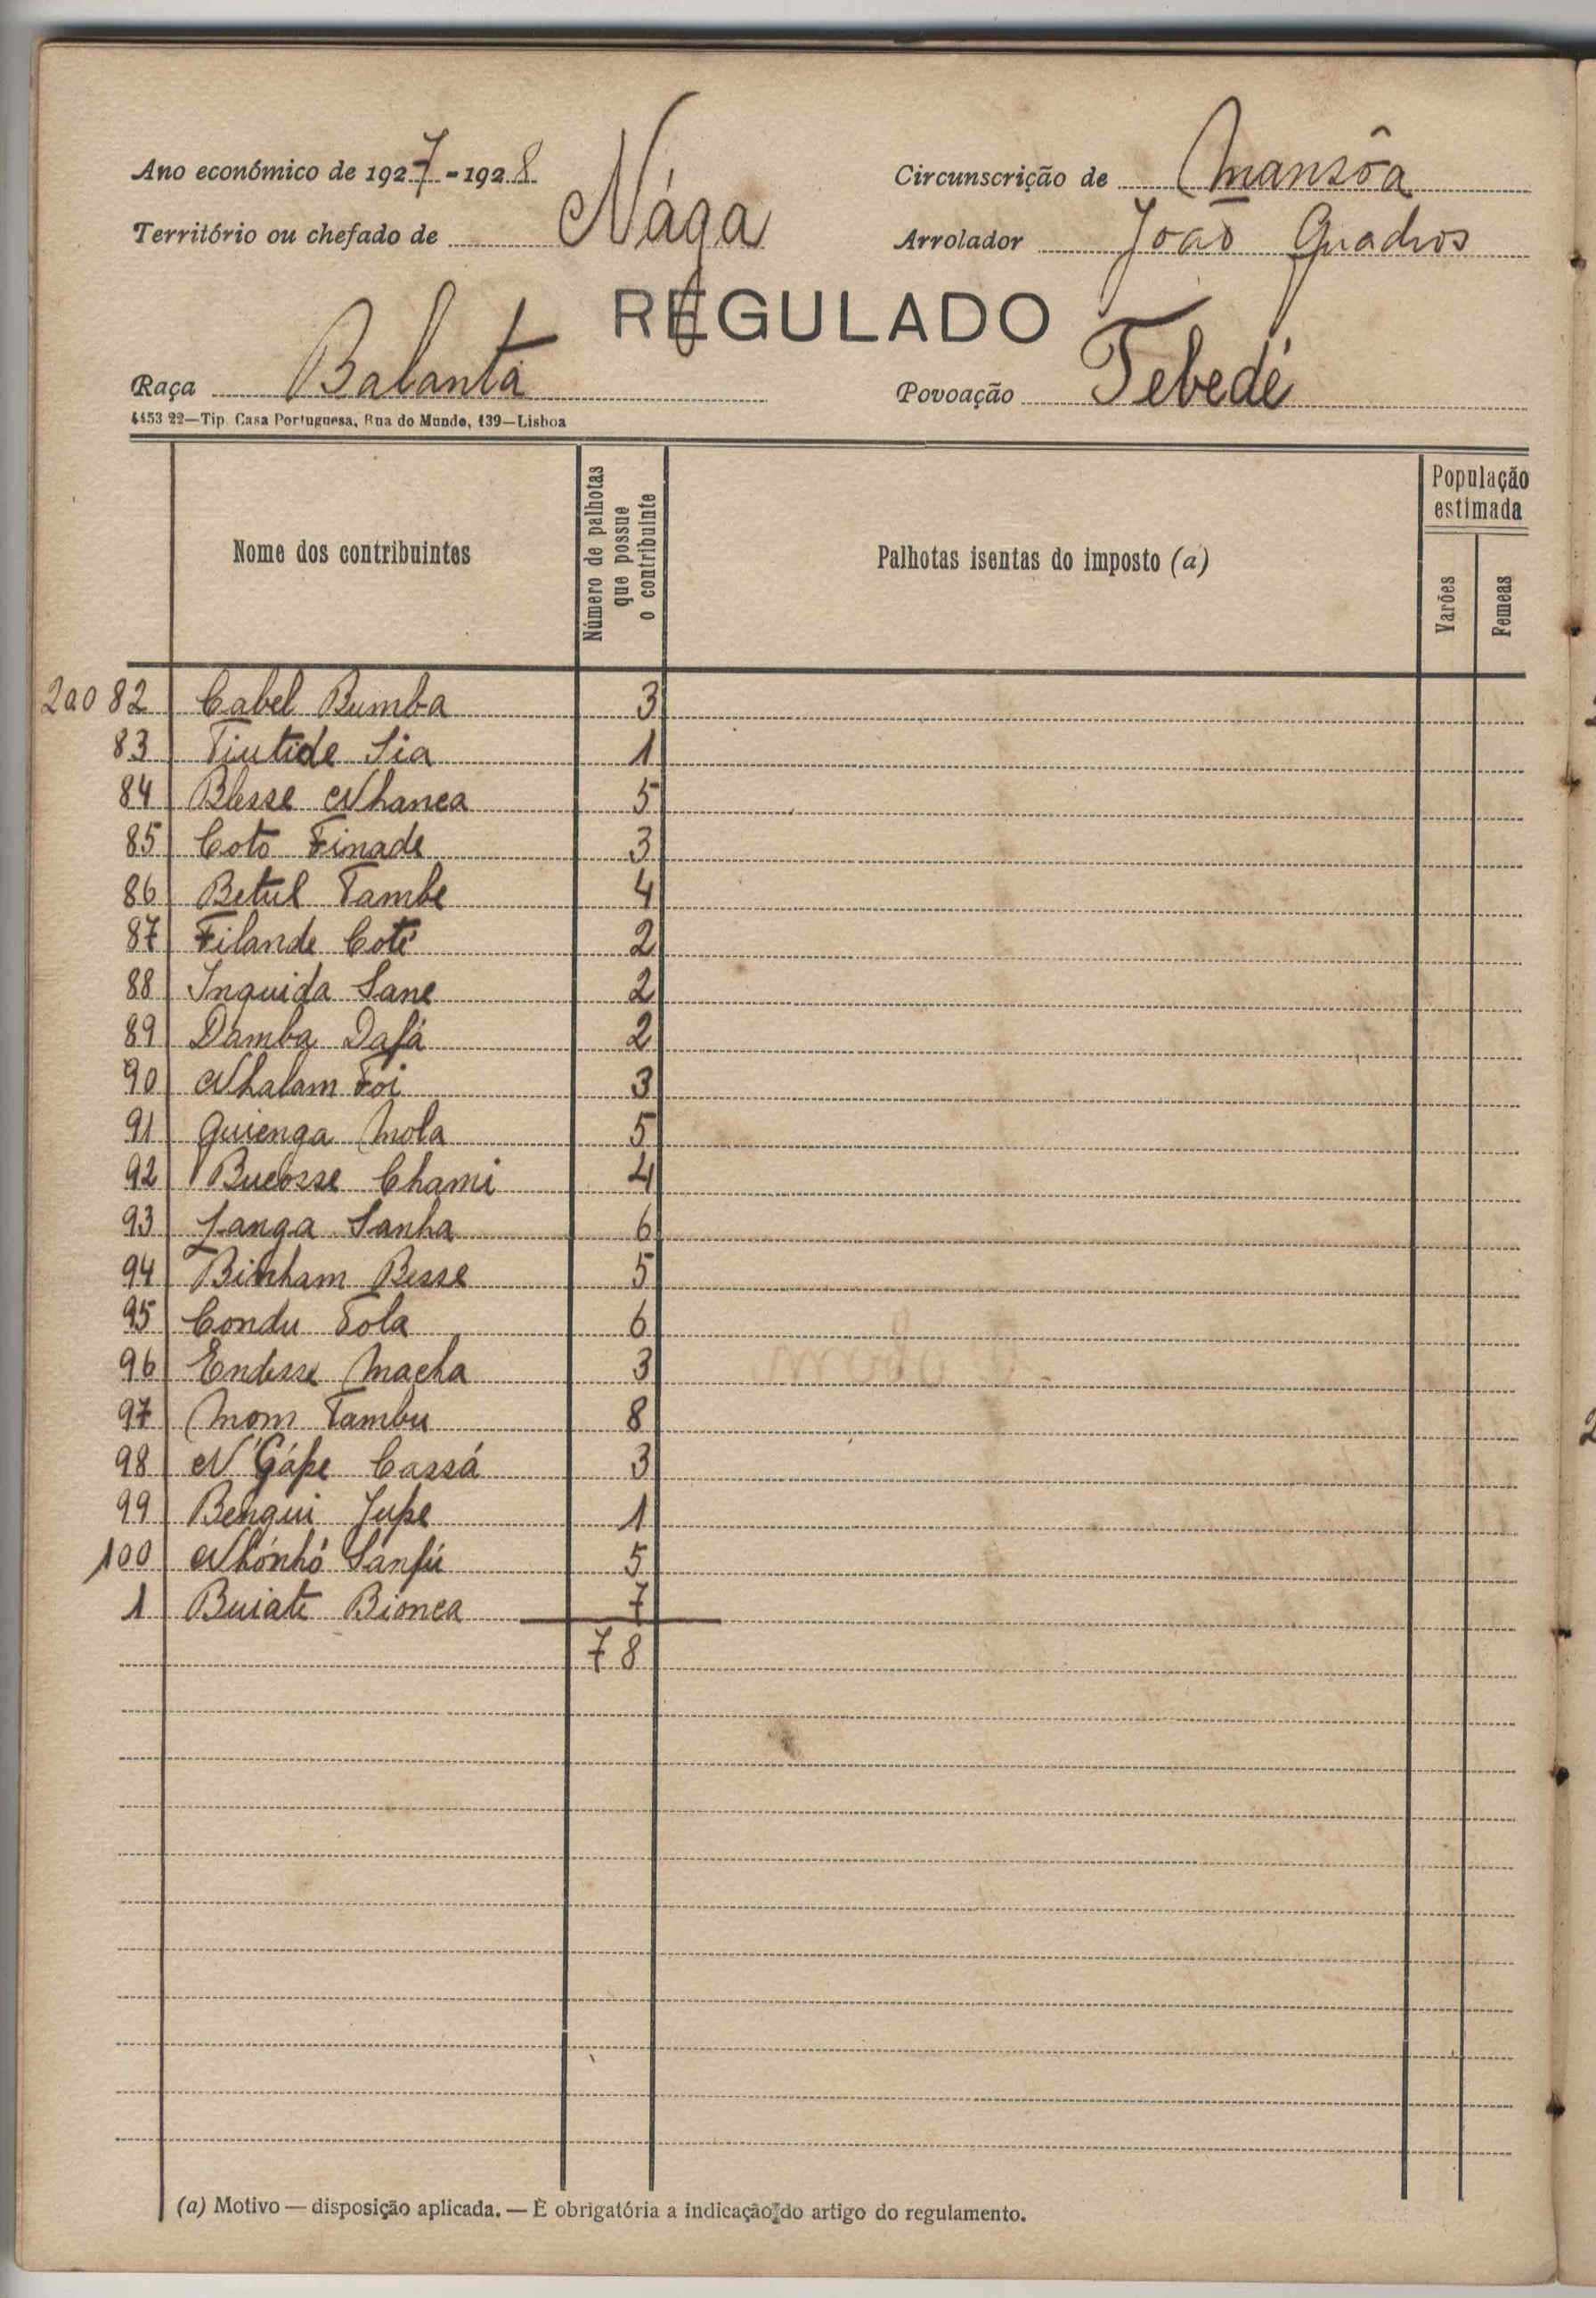 Ano económico de 1927-1928
Circunscrição de Mansôa
Território ou chefado de Nága
Arrolador João Quadros
REGULADO
Raça Balanta
Povoação Tebedé
4453 22—Tip. Casa Portuguesa, Rua do Mundo, 139—Lisboa
Nome dos contribuintes
Número de palhotas que possue o contribuinte
Palhotas isentas do imposto (a)
População estimada
Varões
Femeas
2a0 82 Cabel Bumba 3
83 Tiutide Sia 1
84 Blesse Nhanca 5
85 Coto Finade 3
86 Betul Tambe 4
87 Filande Coté 2
88 Inquida Sane 2
89 Damba Dafá 2
90 Nhalam Foi 3
91 Quienga Mola 5
92 Bucosse Chami 4
93 Langa Sanha 6
94 Binham Besse 5
95 Condu Tola 6
96 Endesse Macha 3
97 Mom Tambu 8
98 N'Gápe Cassá 3
99 Bengui Jupe 1
100 Nhónhó Sanfú 5
1 Buiate Bionca 7
78
(a) Motivo — disposição aplicada. — È obrigatória a indicação do artigo do regulamento.